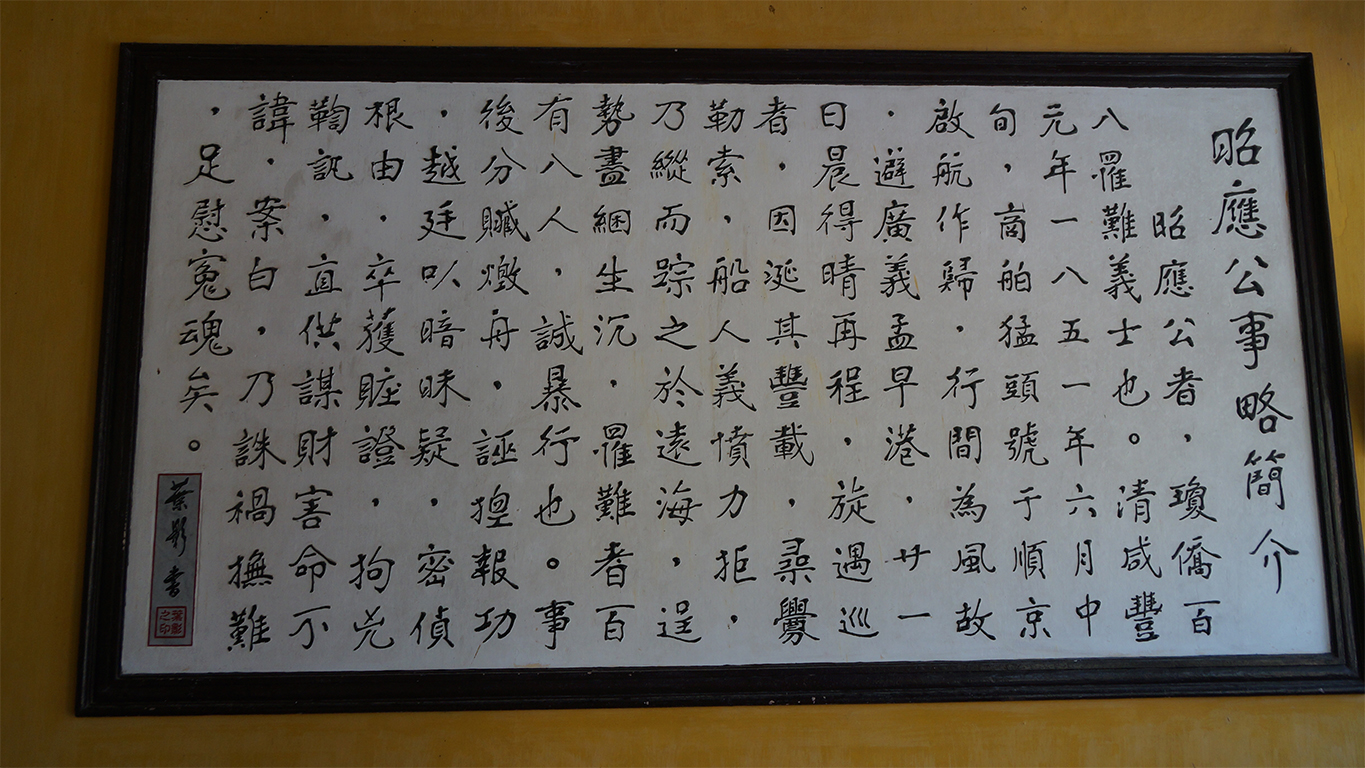 昭應公事略簡介
昭應公者，瓊僑一百
八罹難義士也。清咸豐
元年一八五一年六月中
旬，商舶猛頭號于順京
啟航作歸．行間為風故
．避廣義孟早港，廿一
日晨得晴再程，旋遇巡
者，因涎其豐載，尋釁
勒索，船人義憤力拒．
乃縱而踪之於遠海，逞
勢盡綑生沉．罹難者百
有八人，誠暴行也。事
後分贓燬舟，誣揑報功
．越廷以暗昧疑，密偵
根由．卒獲賍證，拘兇
鞫訊，直供謀財害命不
諱．案白，乃誅禍撫難
，足慰寃魂矣。
葉影書
葉影之印